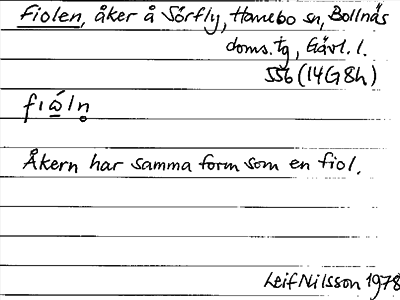 Fiolen, åker å Sörfly, Hanebo sn, Bollnäs
doms. tg, Gävl. l.
556 (14G8h)
fió̲ln̥
Åkern har samma form som en fiol.
Leif Nilsson 1978